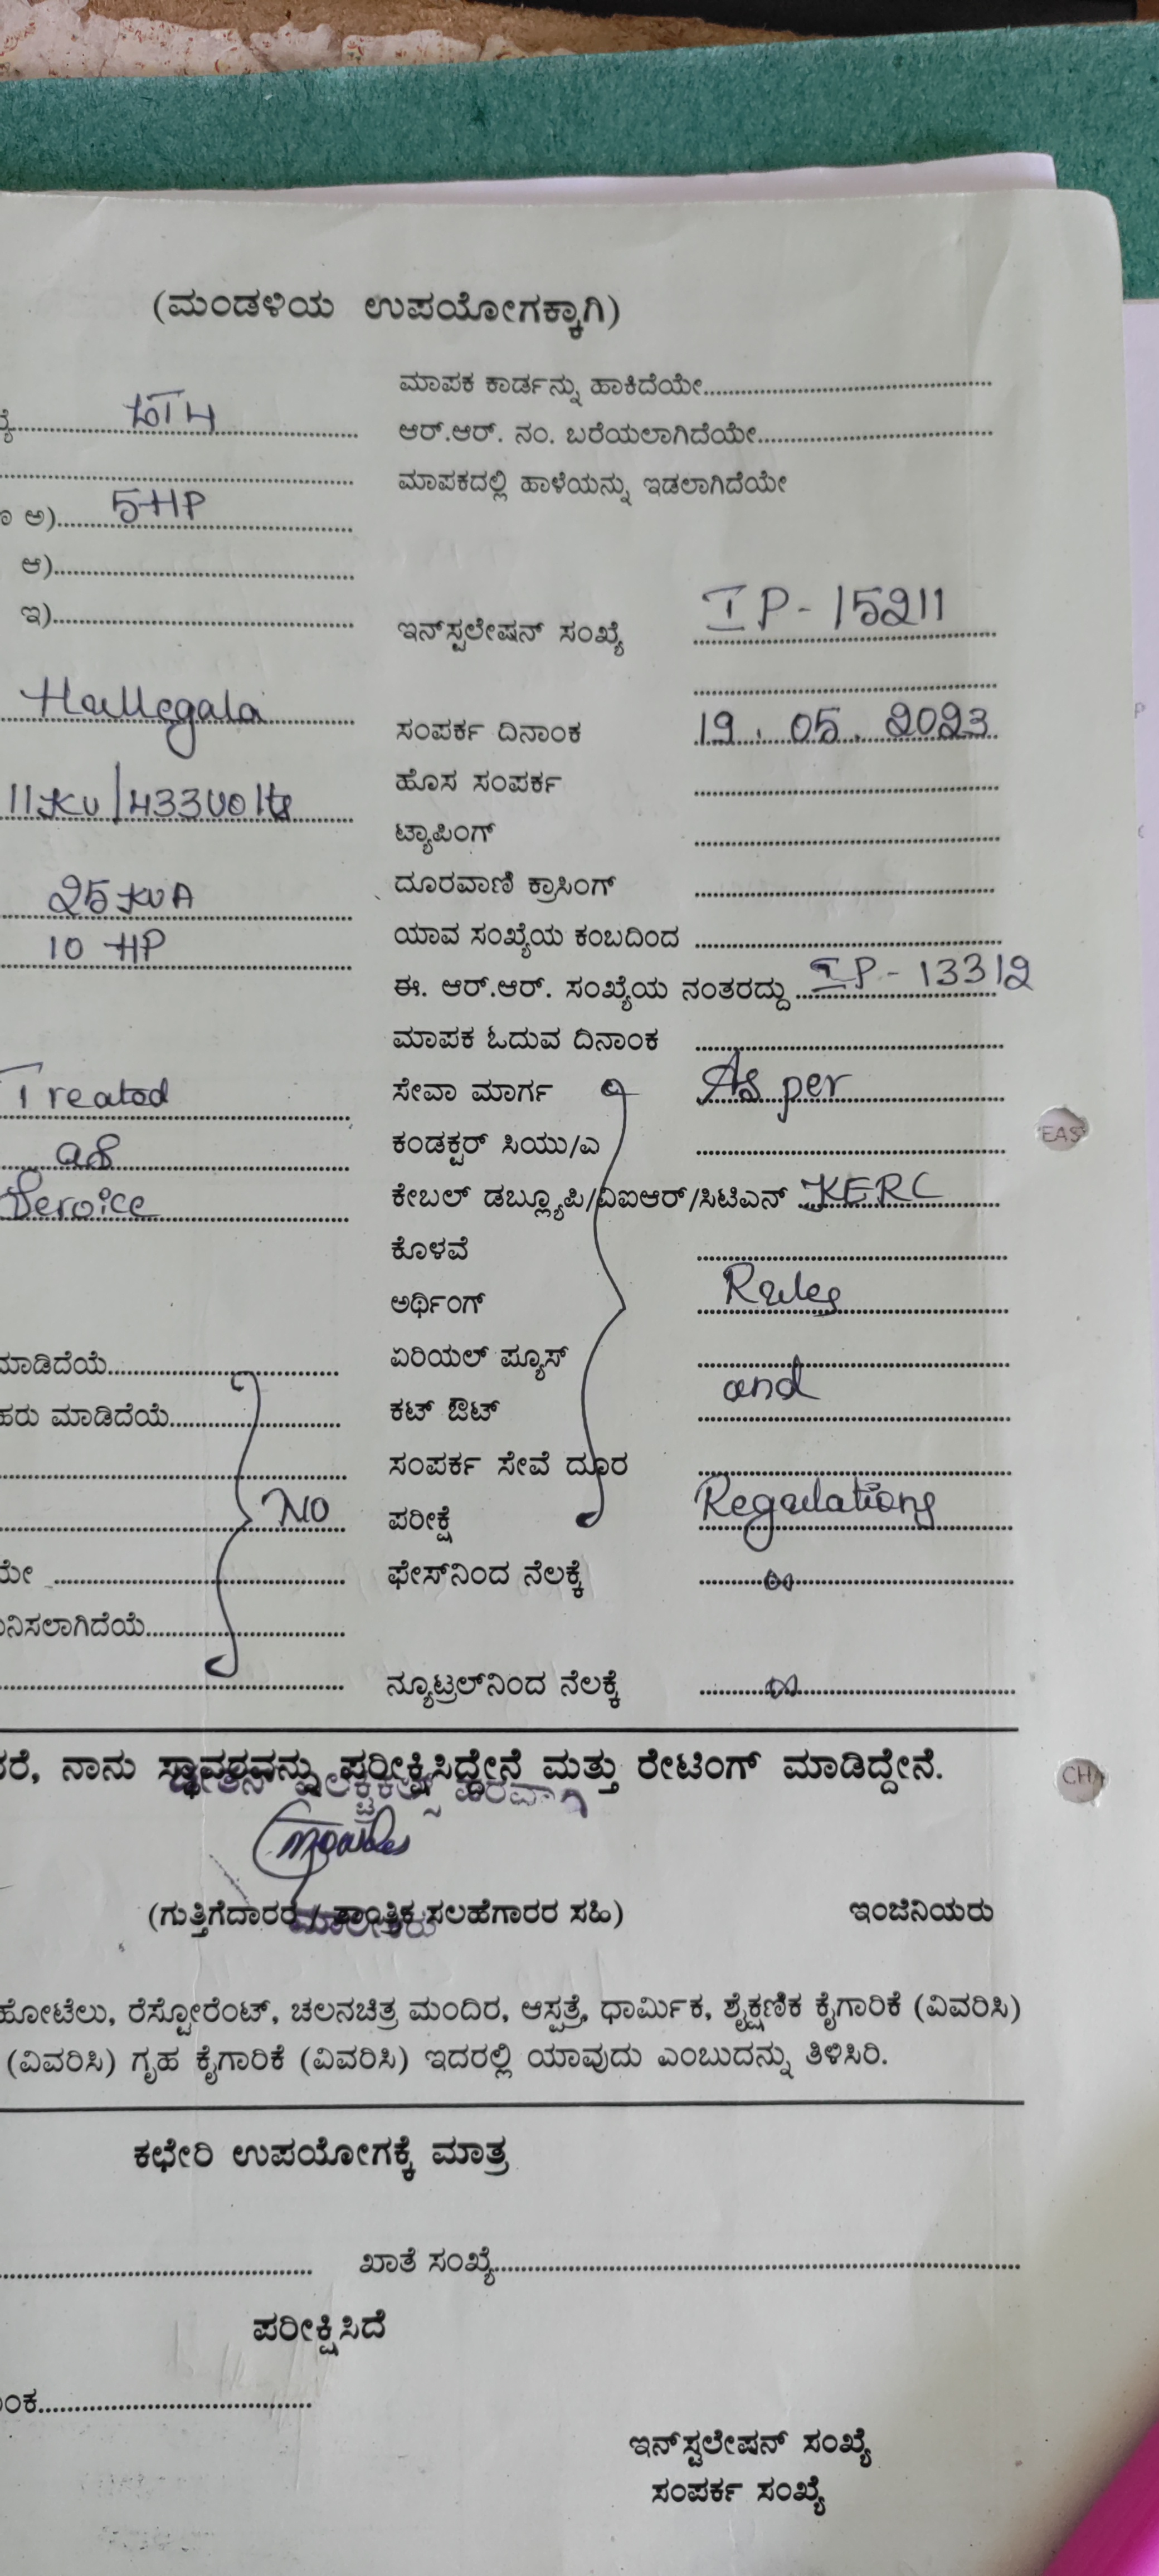 (ಮಂಡಳಿಯ ಉಪಯೋಗಕ್ಕಾಗಿ)
ಮಾಪಕ ಕಾರ್ಡನ್ನು ಹಾಕಿದೆಯೇ
LT4 ಆರ್.ಆರ್. ನಂ. ಬರೆಯಲಾಗಿದೆಯೇ
ಮಾಪಕದಲ್ಲಿ ಹಾಳೆಯನ್ನು ಇಡಲಾಗಿದೆಯೇ
ಅ) 5HP
ಆ)
ಇ)
ಇನ್‌ಸ್ಟಲೇಷನ್ ಸಂಖ್ಯೆ IP-15211
Hallegala ಸಂಪರ್ಕ ದಿನಾಂಕ 19.05.2023
ಹೊಸ ಸಂಪರ್ಕ
11KV/433Volts
ಟ್ಯಾಪಿಂಗ್
25 KVA ದೂರವಾಣಿ ಕ್ರಾಸಿಂಗ್
10 HP ಯಾವ ಸಂಖ್ಯೆಯ ಕಂಬದಿಂದ
ಈ. ಆರ್.ಆರ್. ಸಂಖ್ಯೆಯ ನಂತರದ್ದು IP-13312
ಮಾಪಕ ಓದುವ ದಿನಾಂಕ
Treated ಸೇವಾ ಮಾರ್ಗ As per
as ಕಂಡಕ್ಟರ್ ಸಿಯು/ಎ
Service ಕೇಬಲ್ ಡಬ್ಲ್ಯೂಪಿ/ವಿಐಆರ್/ಸಿಟಿಎನ್ KERC
ಕೊಳವೆ
ಅರ್ಥಿಂಗ್ Rules
ಮಾಡಿದೆಯೆ ಏರಿಯಲ್ ಪ್ಯೂಸ್
ಹರು ಮಾಡಿದೆಯೆ ಕಟ್ ಔಟ್ and
ಸಂಪರ್ಕ ಸೇವೆ ದೂರ
No ಪರೀಕ್ಷೆ Regulations
ಫೇಸ್‌ನಿಂದ ನೆಲಕ್ಕೆ ∞
ನಿಸಲಾಗಿದೆಯೆ
ನ್ಯೂಟ್ರಲ್‌ನಿಂದ ನೆಲಕ್ಕೆ ∞
ರೆ, ನಾನು ಸ್ಥಾವರವನ್ನು ಪರೀಕ್ಷಿಸಿದ್ದೇನೆ ಮತ್ತು ರೇಟಿಂಗ್ ಮಾಡಿದ್ದೇನೆ.
(ಗುತ್ತಿಗೆದಾರರ / ತಾಂತ್ರಿಕ ಸಲಹೆಗಾರರ ಸಹಿ) ಇಂಜಿನಿಯರು
ಹೋಟೆಲು, ರೆಸ್ಟೋರೆಂಟ್, ಚಲನಚಿತ್ರ ಮಂದಿರ, ಆಸ್ಪತ್ರೆ, ಧಾರ್ಮಿಕ, ಶೈಕ್ಷಣಿಕ ಕೈಗಾರಿಕೆ (ವಿವರಿಸಿ)
(ವಿವರಿಸಿ) ಗೃಹ ಕೈಗಾರಿಕೆ (ವಿವರಿಸಿ) ಇದರಲ್ಲಿ ಯಾವುದು ಎಂಬುದನ್ನು ತಿಳಿಸಿರಿ.
ಕಛೇರಿ ಉಪಯೋಗಕ್ಕೆ ಮಾತ್ರ
ಖಾತೆ ಸಂಖ್ಯೆ
ಪರೀಕ್ಷಿಸಿದೆ
ಇನ್‌ಸ್ಟಲೇಷನ್ ಸಂಖ್ಯೆ
ಸಂಪರ್ಕ ಸಂಖ್ಯೆ